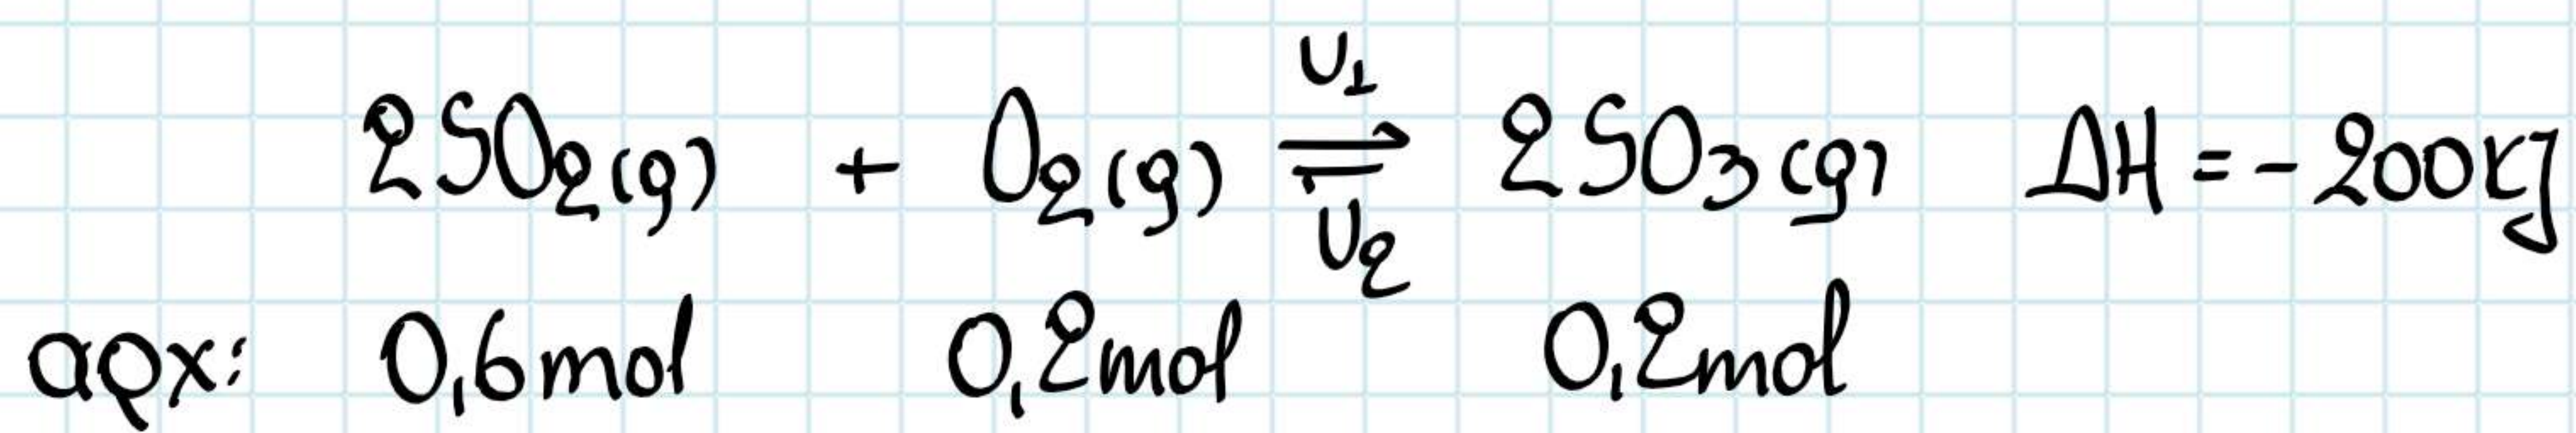 2SO₂(g) + O₂(g) ⇌ 2SO₃(g) ΔH = -200kJ
U₁
U₂
αρχ: 0,6mol 0,2mol 0,2mol